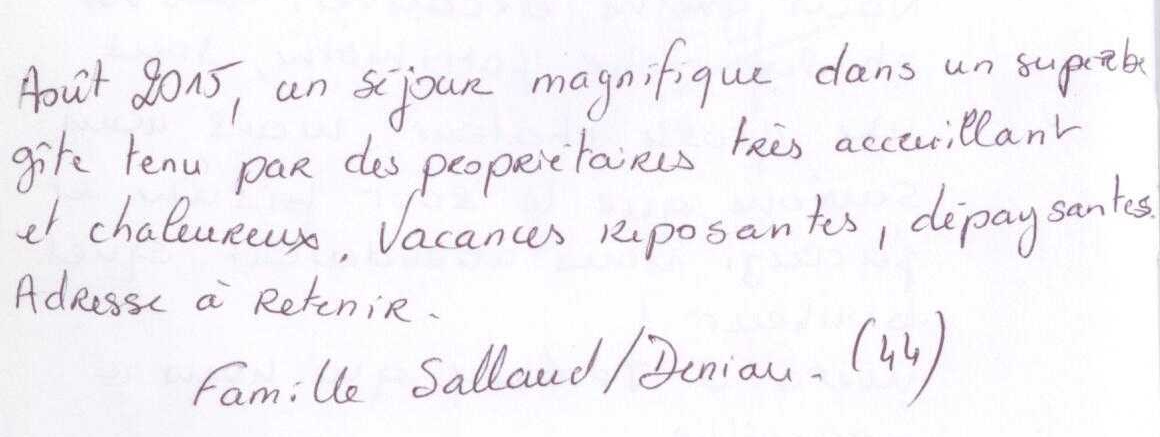 Août 2015, un séjour magnifique dans un superbe
gîte tenu par des propriétaires très accueillant
et chaleureux. Vacances reposantes, dépaysantes.
Adresse à retenir.
Famille Sallaud/Deniau. (44)